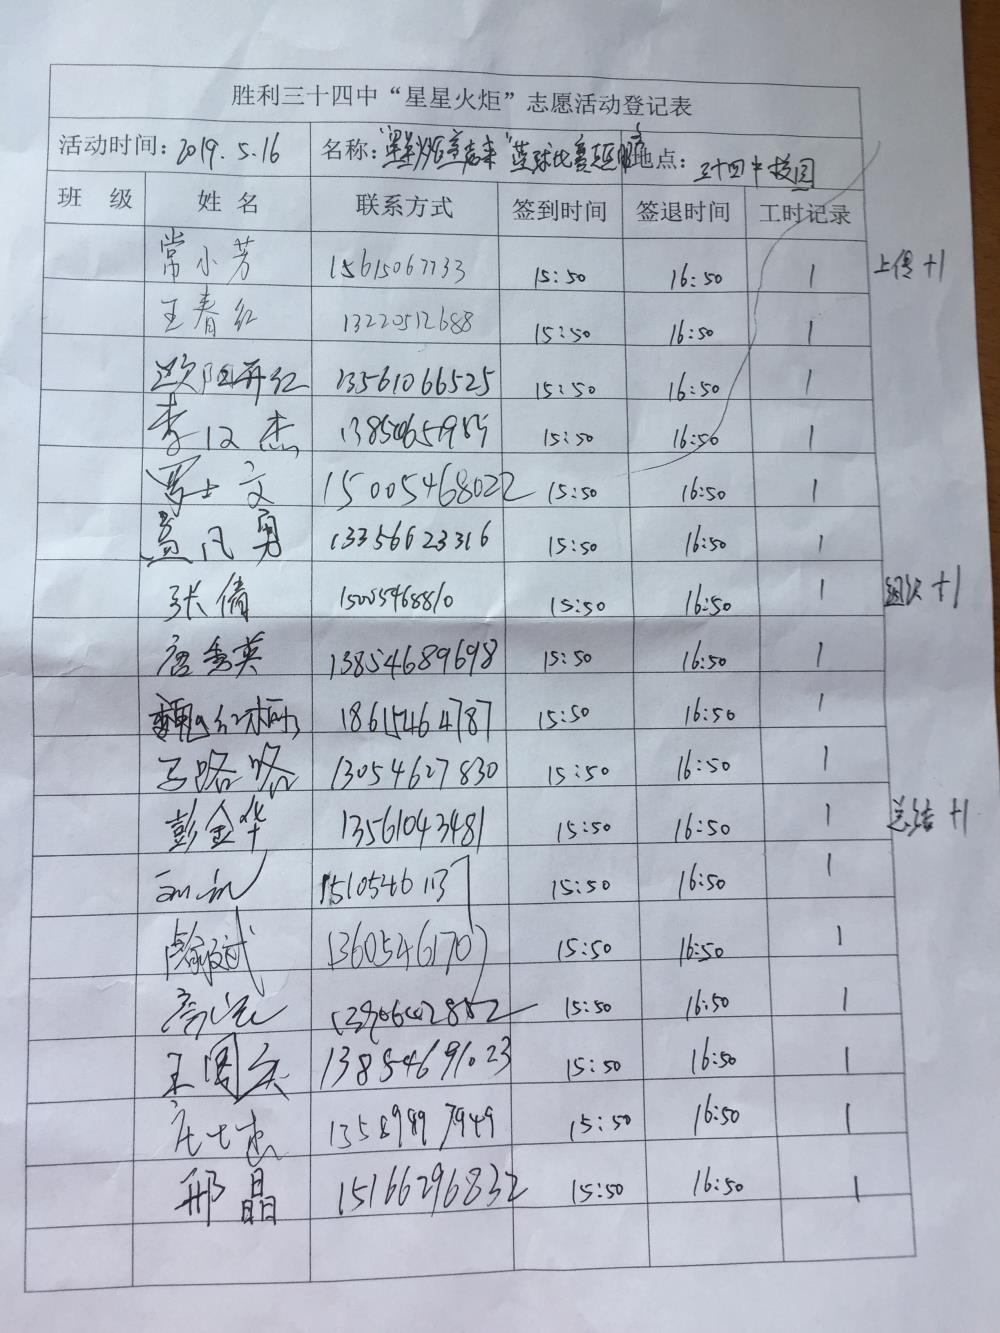 胜利三十四中“星星火炬”志愿活动登记表
活动时间：2019.5.16 名称： 篮球比赛 地点：三十四中校园
班 级 姓 名 联系方式 签到时间 签退时间 工时记录
常小芳 15615067733 15:50 16:50 1 上传+1
王春红 13220512688 15:50 16:50 1
欧阳再红 13561066525 15:50 16:50 1
李汉杰 15:50 16:50 1
罗士文 15005468022 15:50 16:50 1
盖凡勇 13356623316 15:50 16:50 1
张倩 15005468810 15:50 16:50 1 组织+1
唐秀英 13854689698 15:50 16:50 1
魏红梅 18615464787 15:50 16:50 1
马路路 13054627830 15:50 16:50 1
彭金华 13561043481 15:50 16:50 1 总结+1
15:50 16:50 1
15:50 16:50 1
15:50 16:50 1
王图兵 13854691023 15:50 16:50 1
13589897949 15:50 16:50 1
邢晶 15166296832 15:50 16:50 1